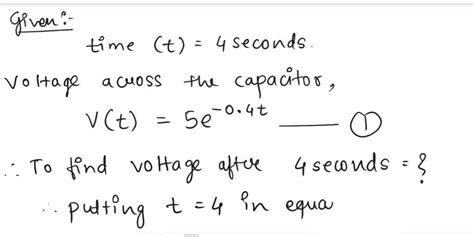 Given:-
time (t) = 4 seconds.
Voltage across the capacitor,
V(t) = 5e^-0.4t —— ①
∴ To find voltage after 4 seconds = ?
∴ putting t = 4 in equa